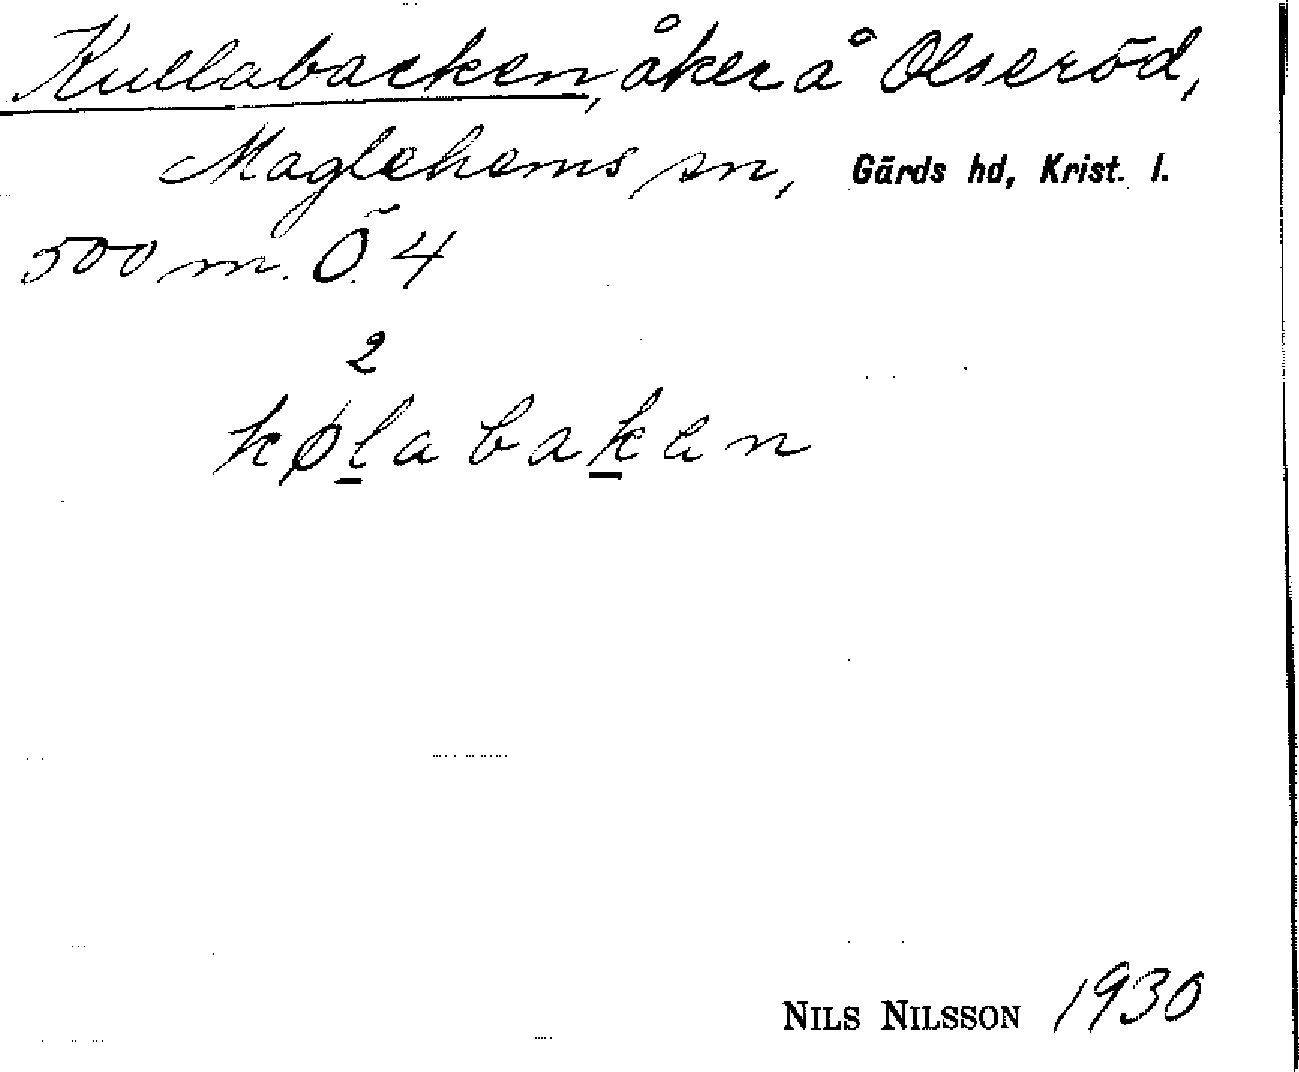 Kullabacken, åker å Olseröd,
Maglehems sn, Gärds hd, Krist. l.
500 m. Ö. 4
2
kølabaken
NILS NILSSON 1930